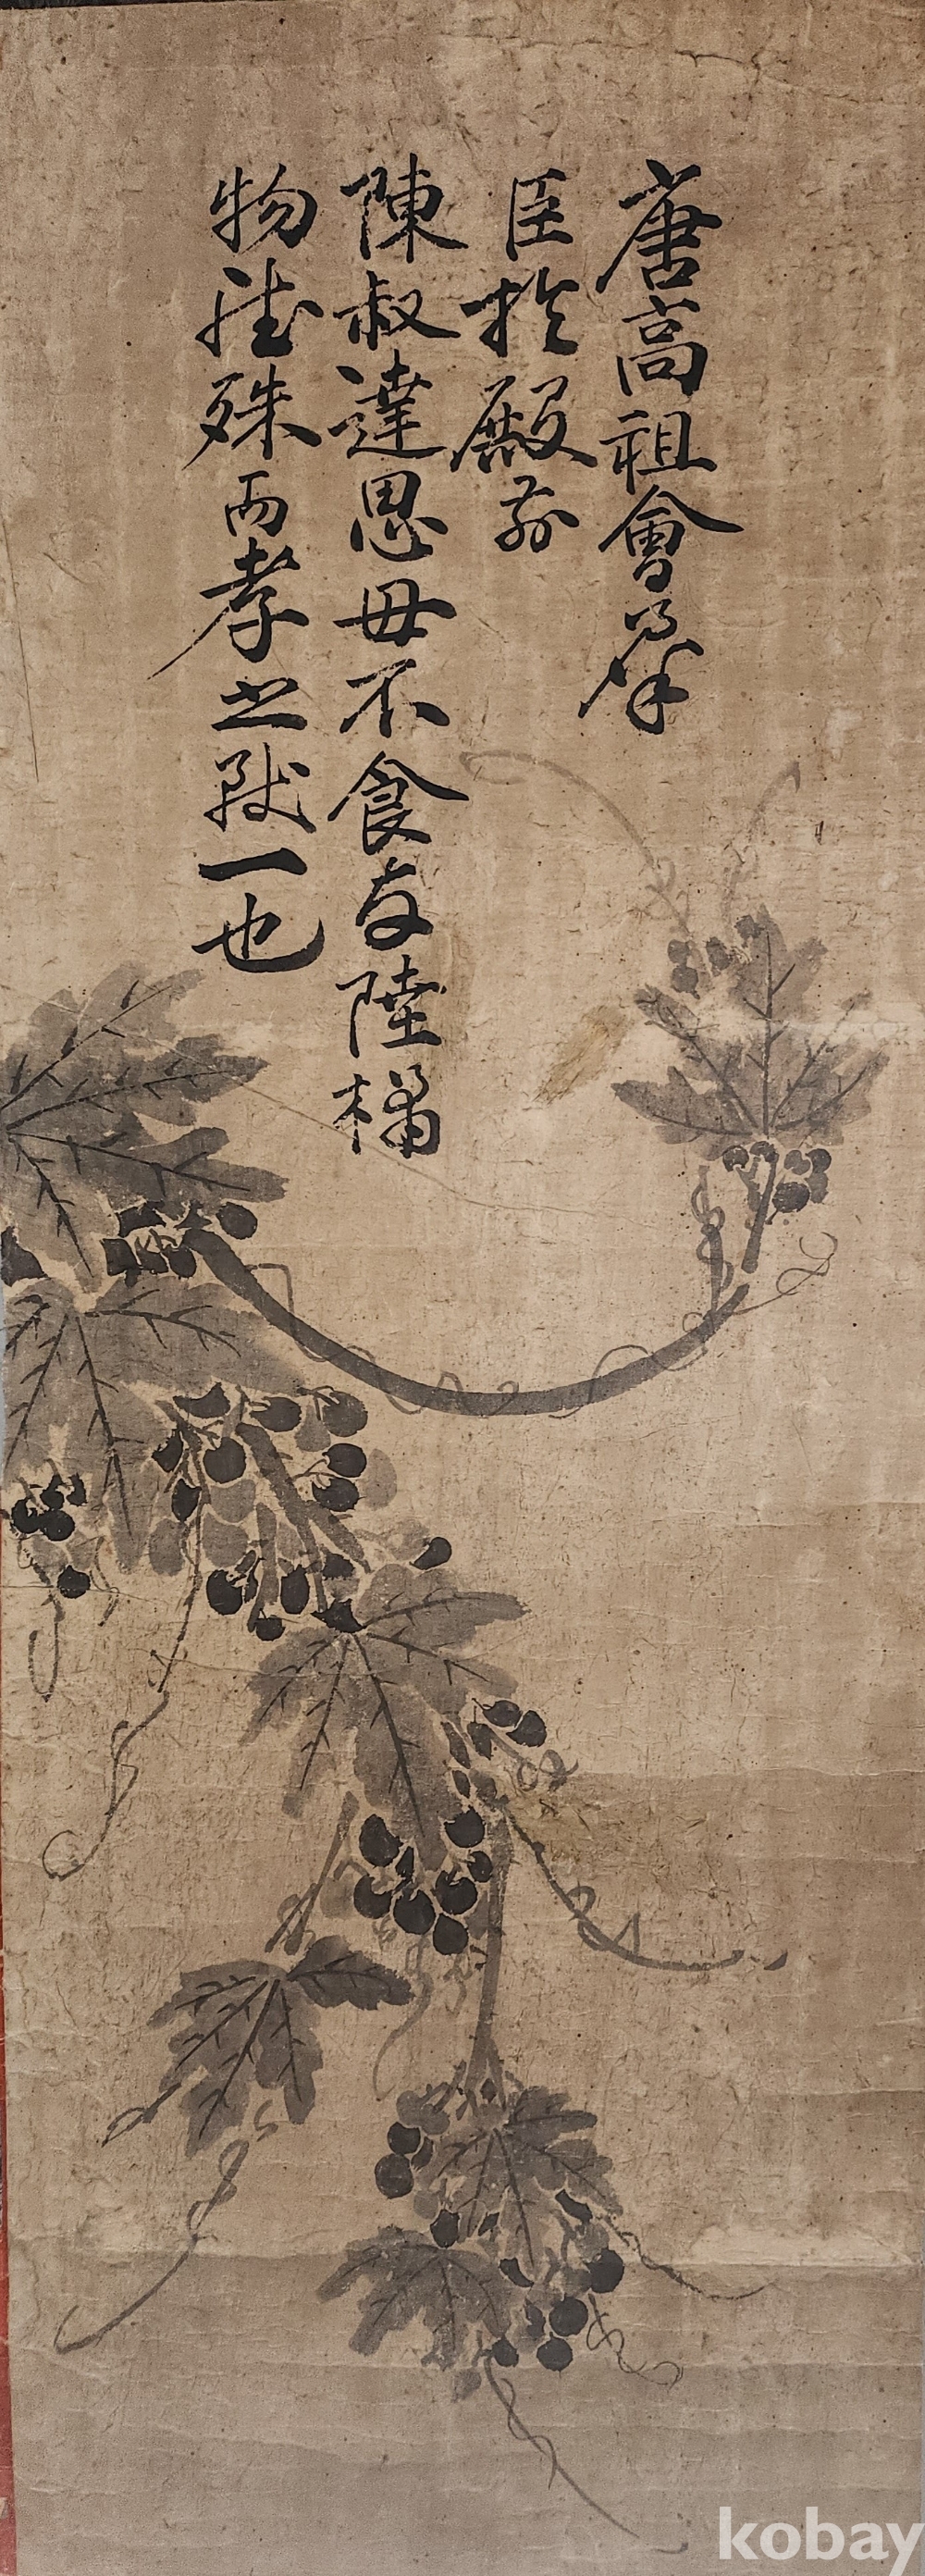 唐高祖會羣
臣於殿前
陳叔達思母不食陸橘
物雖殊而孝之一也
kobay